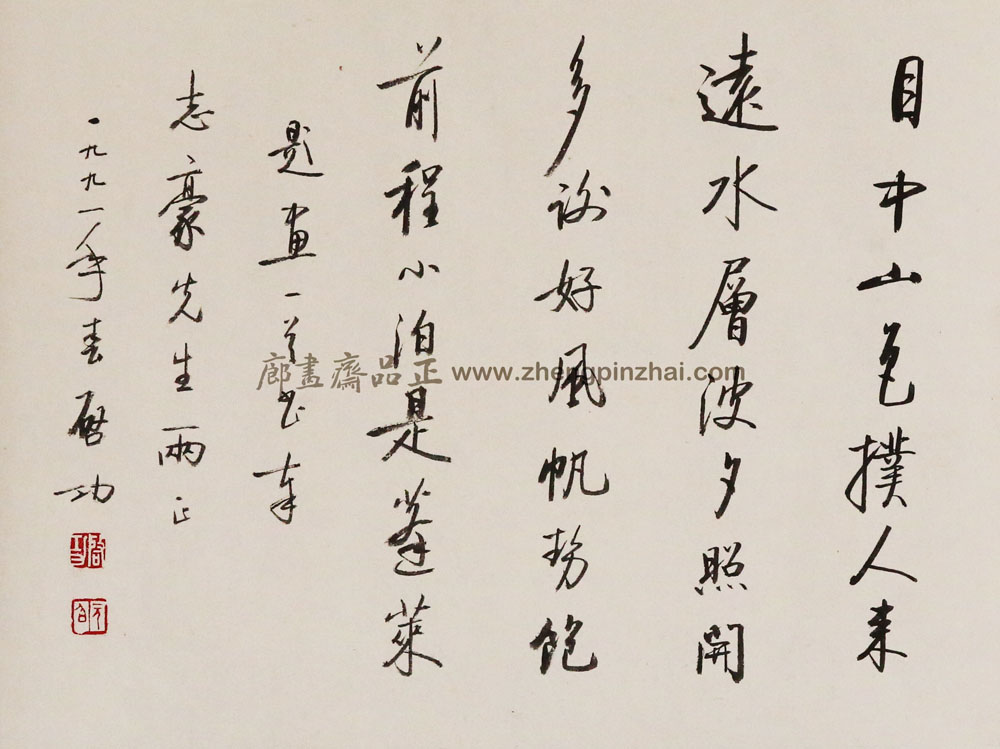 目中山色撲人来
遠水層波夕照開
多謝好風帆势飽
前程小泊是蓬萊
題画一首书奉
志豪先生兩正
一九九一年春啓功
廊畫齋品正 www.zhengpinzhai.com